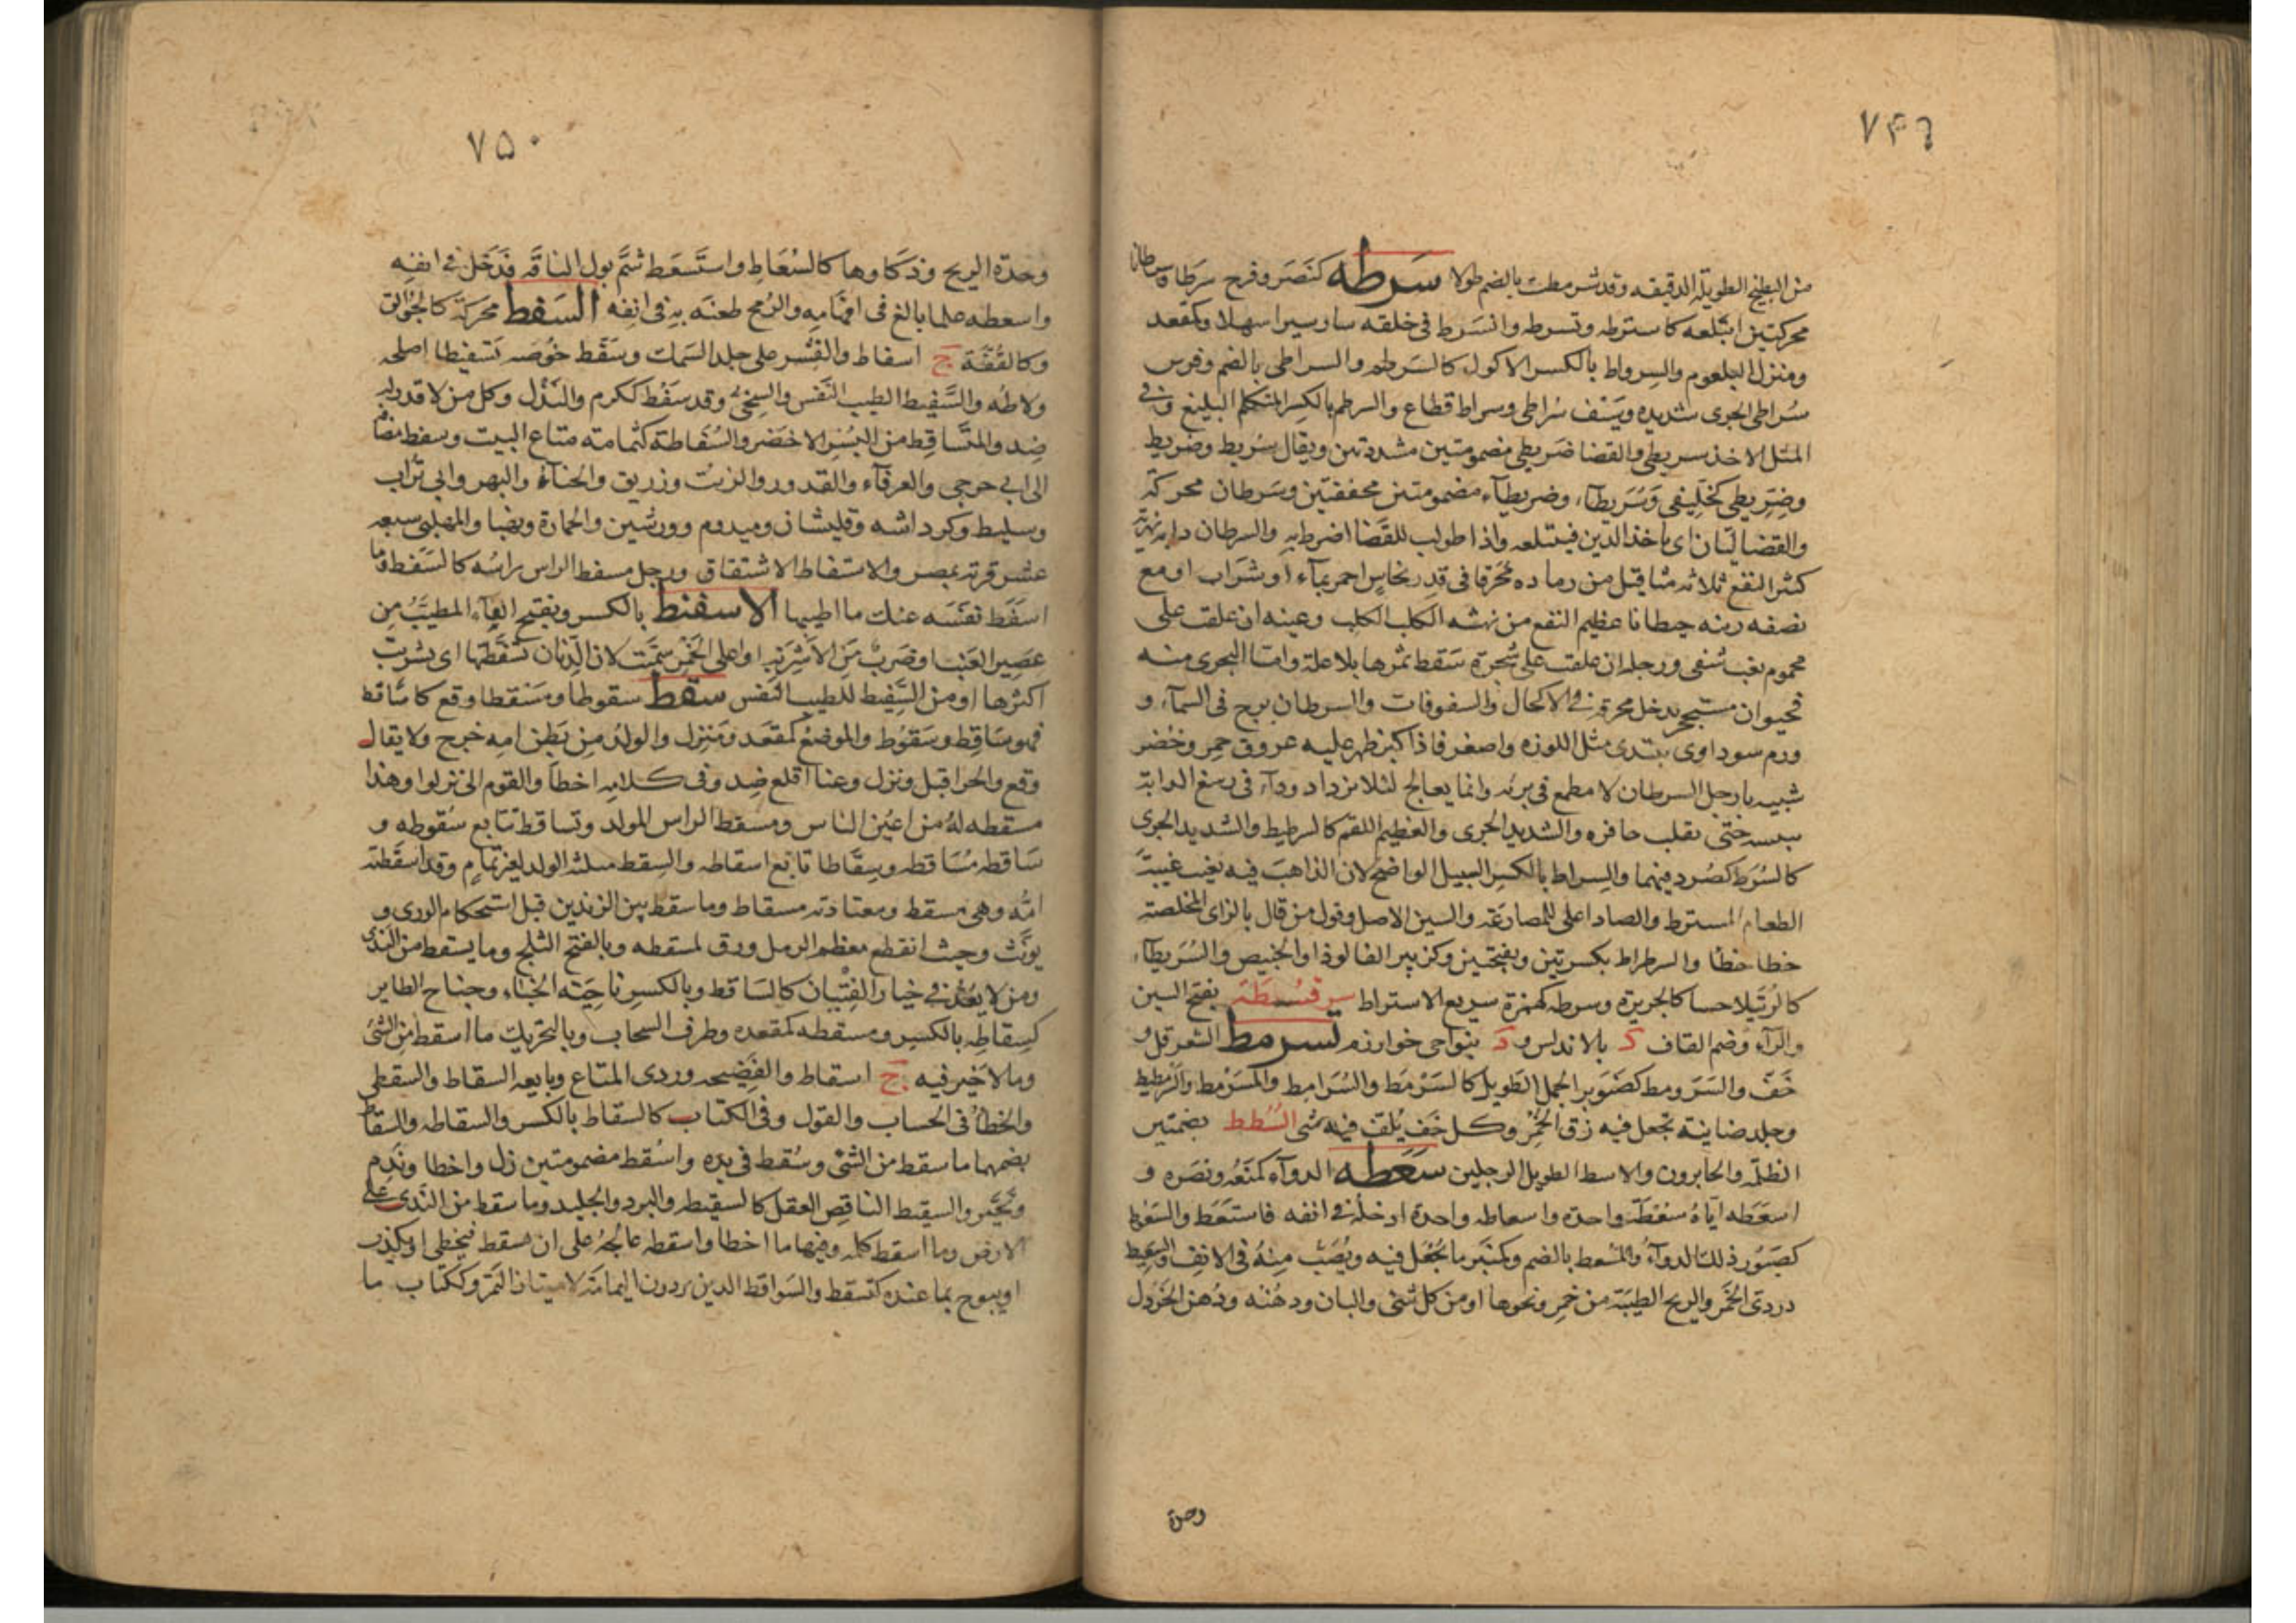 ٧۴٩
من البطيخ الطويلة الدقيقه وقد شرمطت بالضم طولا سَرَطه كنَصَر وفرح سَرَطا وسرطانا
محركتين ابتلعه كاسترطه وتسرطه وانسَرط فى خلقه سار سيرا سهلا وكمقعد
ومنزل البلعوم والسِرواط بالكسر الاكول كالسَرطم والسراطى بالضم وفرس
سُراطى الجرى شديده وسَيف سُراطى وسراط قطاع والسرطم بالكسر المتكلم البليغ وفى
المثل الاخذ سريطى والقضا ضريطى مضمومتين مشددتين ويقال سُريط وضريط
وضِرّيطى كخلّيفى وسُرَيطآء وضريطآء مضمومتين مخففتين وسَرطان محركة
والقضا ليّان اى ياخذ الدين فيبتلعه واذا طولب للقضا اضرط به والسرطان دابه نهرية
كثير النفع ثلاثه مثاقيل من رماده مُحَرقا فى قدر نحاس احمر بمآء او شراب او مع
نصفه زنه جنطانا عظيم النفع من نهشه الكلب الكلب وعينه ان علقت على
محموم بغب شفى ورجله ان علقت على شجرة سَقط ثمرها بلا علة واما البحرى منه
فحيوان مستحجر يدخل محرقه فى الاكحال والسفوفات والسرطان برج فى السمآء و
ورم سوداوى يبتدى مثل اللوزه واصغر فاذا كبر ظهر عليه عروق حمر وخُضر
شبيه بارجل السرطان لا مطمع فى برئه وانما يعالج لئلا يزداد ودآء فى رسغ الدابة
ييبسه حتى يقلب حافره والشديد الجرى والعظيم اللقم كالسرطيط والشديد الجرى
كالسُرَط كصُرد فيهما والسِراط بالكسر السبيل الواضح لان الذاهب فيه يغيب غيبة
الطعام المسترط والصاد اعلى للمضارعة والسين الاصل وقول من قال بالزاى المخلصة
خطا خطأ والسرطراط بكسرتين وبفتحتين وكزبير الفالوذ او الخبيص والسُرَيطآء
كالرُتَيلا حسا كالحريرة وسرطه كهمزة سريع الاستراط سرقسطة بفتح السين
والرآء وضم القاف د بالاندلس و د بنواحى خوارزم سرمط الشعر قل و
خَفّ والسَرَومط كصَنَوبر الجمل الطويل كالسَرمَط والسُرَامِط والمُسَرمط والسرمطيط
وجلد ضاينة تجعل فيه زق الخمر وكل خف يُلَفّ فيه شى السُطط بضمتين
الظلمه والجايرون والاسط الطويل الرجلين سَعَطه الدوآء كمنَعَه ونصَره و
اسعَطه اياه سَعْطَة واحدة واسعاطه واحدة ادخله فى انفه فاستَعَط والسَعُوط
كصَبُور ذلك الدوآء والمُسعط بالضم وكمنبر ما يُجعَل فيه ويُصَب مِنهُ فى الانف والسعيط
دردى الخمر والريح الطيبة من خمر ونحوها او من كل شى والبان ودهنه ودُهن الخَردل
وحدة
٧۵٠
وحدّة الريح وذكاوها كالسُعَاط واستَسعَط شمّ بول الناقه فدخل فى انفه
واسعطه علما بالغ فى افهامه والرمح طعنَه به فى انفه السَفط محركة كالجُوالق
وكالقُفّة ج اسفاط والقِشر على جلد السَمك وسَفّط حَوضه تَسفيطا اصلحه
ولاطه والسَّفيط الطيب النفس والسخىّ وقد سَفُط ككرم والنَذل وكل من لا قدر له
ضِد والمتساقِط من البُسر الاخضر والسُفاطة كثمامته متاع البيت وسفط مضا
الى ابى جرجى والعرفآء والقدور والزيت وزريق والحنآء والبهر وابى تراب
وسليط وكرداشه وقليشان وميدوم وورشين والخمارة ونهيا والمهلبى سبعه
عشر قرية بمصر والاستفاط الاشتقاق ورجل مسفط الراس رائسه كالسَفَط وما
اسفَط نفسَه عنك ما اطيبها الاسفنط بالكسر وبفتح الفآء المطيَّب مِن
عَصير العنب او ضرب من الاشربه او اعلى الخمر سميت لان الدنان تسفّطتها اى تشربت
اكثرها او من السَّفيط للطيب النفس سقط سقوطا ومَسقطا وقع كاساقط
فهو ساقِط وسَقُوط والموضع كمقعَد ومَنزل والولدُ من بَطن امه خرج ولا يقال
وقع والحر اقبل ونزل وعنا اقلع ضِد وفى كلامه اخطأ والقوم الىّ نزلوا وهذا
مسقطه لهُ من اعيُن الناس ومسقط الراس المولد وتساقط تتابع سُقوطه و
ساقطه مُساقطه وسِقاطا تابع اسقاطه والسقط مثلثة الولد لغير تمام وقد اسقَطته
امُّه وهى مسقط ومعتادته مسقاط وما سقط بين الزندين قبل استحكام الورى و
يونَّث وحيث انقطع معظم الرمل ورق كمسقطه وبالفتح الثلج وما يسقط من الندى
ومن لا يُعدّ فى خيار الفِتيان كالساقط وبالكسر ناحية الخباء وجناح الطاير
كسِقاطه بالكسر ومسقطه كمقعده وطرف السحاب وبالتحريك ما اسقط من الشئ
وما لا خير فيه ج اسقاط والفضيحه وردى المتاع وبايعه السقاط والسقطى
والخطأ فى الحساب والقول وفى الكتاب كالسقاط بالكسر والسقاطه والسقاط
بضمهما ما سقط من الشئ وسُقط فى يده واسقط مضمومتين زل واخطا وندِم
وتحيَّر والسقيط الناقص العقل كالسقيطه والبرد والجليد وما سقط من الندى على
الارض وما اسقط كلمه وفيها ما اخطا واسقطه عالجهُ على ان يسقط فيخطى او يكذب
او يبوح بما عنده كتسقط والسَواقط الذين يردون اليمامة لامتيار التمر وككتاب ما